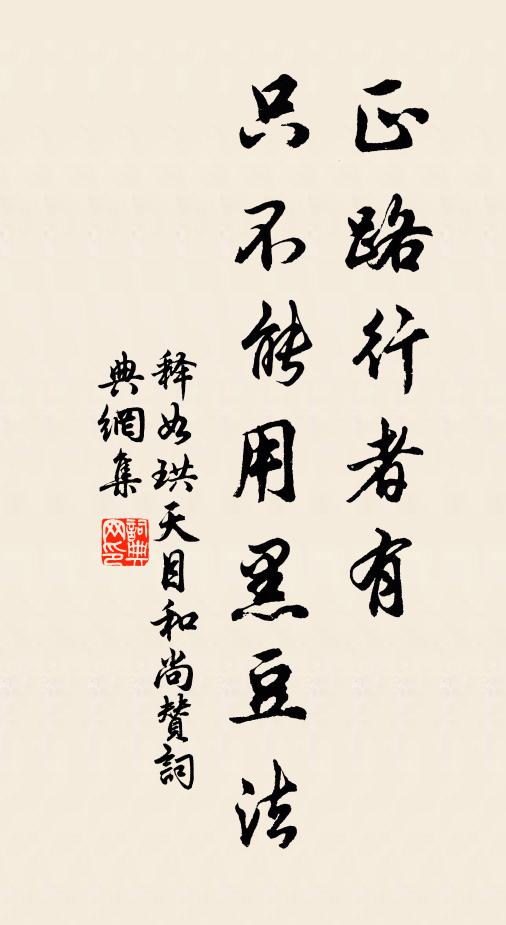 正路行者有
只不能用黑豆法
释如珙天目和尚赞詞
典網集
詞典
网印